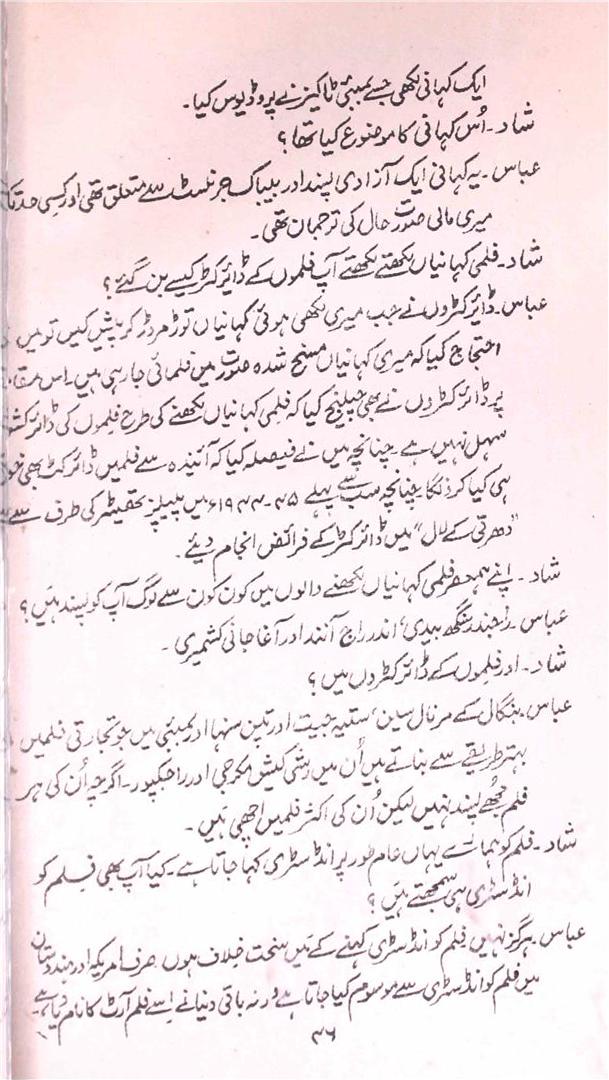 ایک کہانی لکھی جسے بمبئی ٹاکیز نے پروڈیوس کیا۔
شاد۔ اُس کہانی کا موضوع کیا تھا؟
عباس۔ یہ کہانی ایک آزادی پسند اور بیباک جرنلسٹ سے متعلق تھی اور کسی حد تک
میری مالی صورت حال کی ترجمان تھی۔
شاد۔ فلمی کہانیاں لکھتے لکھتے آپ فلموں کے ڈائرکٹر کیسے بن گئے؟
عباس۔ ڈائرکٹروں نے جب میری لکھی ہوئی کہانیاں توڑ مروڑ کر پیش کیں تو میں
احتجاج کیا کہ میری کہانیاں مسخ شدہ صورت میں فلمائی جا رہی ہیں۔ اس
پر ڈائرکٹروں نے بھی چیلنج کیا کہ فلمی کہانیاں لکھنے کی طرح فلموں کی
سہل نہیں ہے۔ چنانچہ میں نے فیصلہ کیا کہ آئیندہ سے فلمیں ڈائرکٹ بھی
ہی کیا کروں گا۔ چنانچہ سب سے پہلے ۴۵-۱۹۴۴ء میں پیپلز تھیٹر کی طرف سے
“دھرتی کے لال” میں ڈائرکٹر کے فرائض انجام دیئے۔
شاد۔ اپنے ہمعصر فلمی کہانیاں لکھنے والوں میں کون کون سے لوگ آپ کو پسند ہیں؟
عباس۔ راجندر سنگھ بیدی، اندر راج آنند اور آغا جانی کشمیری۔
شاد۔ اور فلموں کے ڈائرکٹروں میں؟
عباس۔ بنگال کے مرنال سین، ستیہ جیت اور تپن سنہا اور بمبئی میں جو تجارتی فلمیں
بہتر طریقے سے بناتے ہیں اُن میں رشی کیش مکرجی اور راجکپور۔ اگرچہ اُن کی ہر
فلم مجھے پسند نہیں لیکن اُن کی اکثر فلمیں اچھی ہیں۔
شاد۔ فلم کو ہمارے یہاں عام طور پر انڈسٹری کہا جاتا ہے۔ کیا آپ بھی فلم کو
انڈسٹری ہی سمجھتے ہیں؟
عباس۔ ہرگز نہیں فلم کو انڈسٹری کہنے کے میں سخت خلاف ہوں۔ صرف امریکہ اور ہندوستان
میں فلم کو انڈسٹری سے موسوم کیا جاتا ہے ورنہ باقی دنیا نے اِسے فلم آرٹ کا نام دیا ہے۔
۳۶